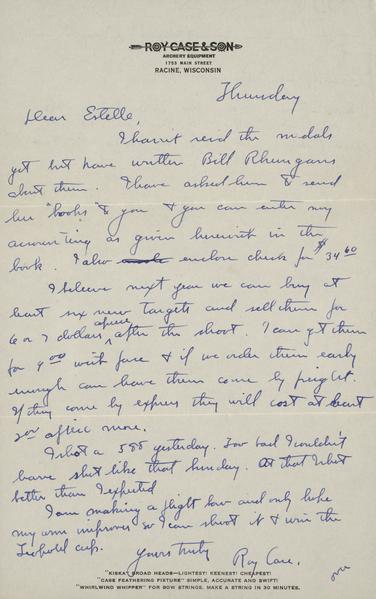 ROY CASE & SON
ARCHERY EQUIPMENT
1753 MAIN STREET
RACINE, WISCONSIN
Thursday
Dear Estelle,
I havn't recd the medals
yet but have written Bill
about them. I have asked him to send
his "books" to you & you can enter my
accounting as given herewith in the
book. I also enclose check for $34 60
I believe next year we can buy at
least six new targets and sell them for
6 or 7 dollars apiece after the shoot. I can get them
for 9 00 with face & if we order them early
enough can have them come by freight.
If they come by express they will cost at least
2 00 apiece more.
I shot a 588 yesterday. Too bad I couldn't
have shot like that Sunday. At that I shot
better than I expected
I am making a flight bow and only hope
my arm improves so I can shoot it & win the
Leopold cup.
Yours truly
Roy Case.
"KISKAT BROAD HEADS—LIGHTEST! KEENEST! CHEAPEST!
"CASE FEATHERING FIXTURE" SIMPLE, ACCURATE AND SWIFT!
"WHIRLWIND WHIPPER" FOR BOW STRINGS. MAKE A STRING IN 30 MINUTES.